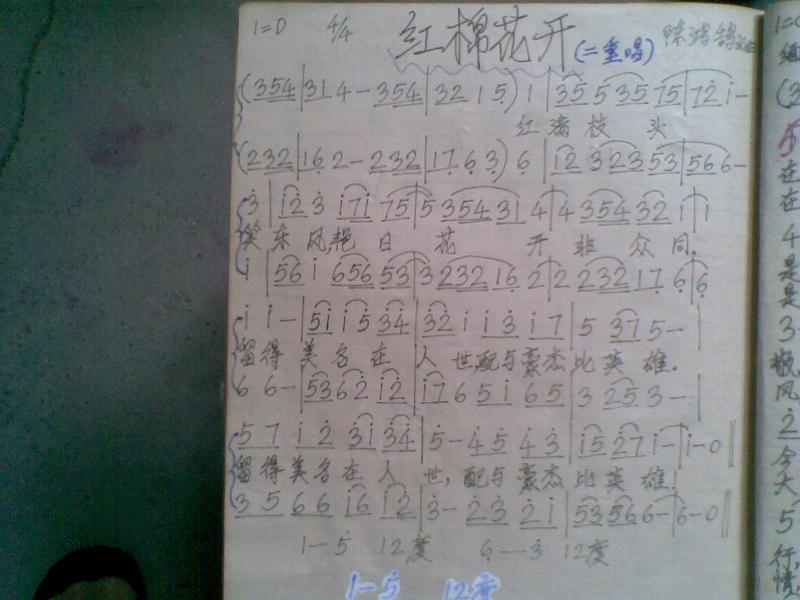 1=D 4/4 红棉花开(二重唱)
(354|314-354|3215)1|355355 75|72i-
红满枝头
(232|162-232|1763)6|123235 3|566-
3|i23 i7i 75|5 354 31 4|4 354 32 1|1
笑东风,艳日花开非众同.
i|56i 656 53|3 232 16 2|2 232 17 6|6
i i-|5i i5 34|32 i i3 i7|5 37 5-|
留得美名在人世配与豪杰比英雄.
6 6-|53 62 i2|i7 6 5i 65|3 25 3-|
57 i2 3i 34|5-45 43|i5 27 i-|i-0||
留得美名在人世,配与豪杰比英雄!
35 66 i6 i2|3-23 2i|53 56 6-|6-0||
1—5 12度 6—3 12度
1-5 12度